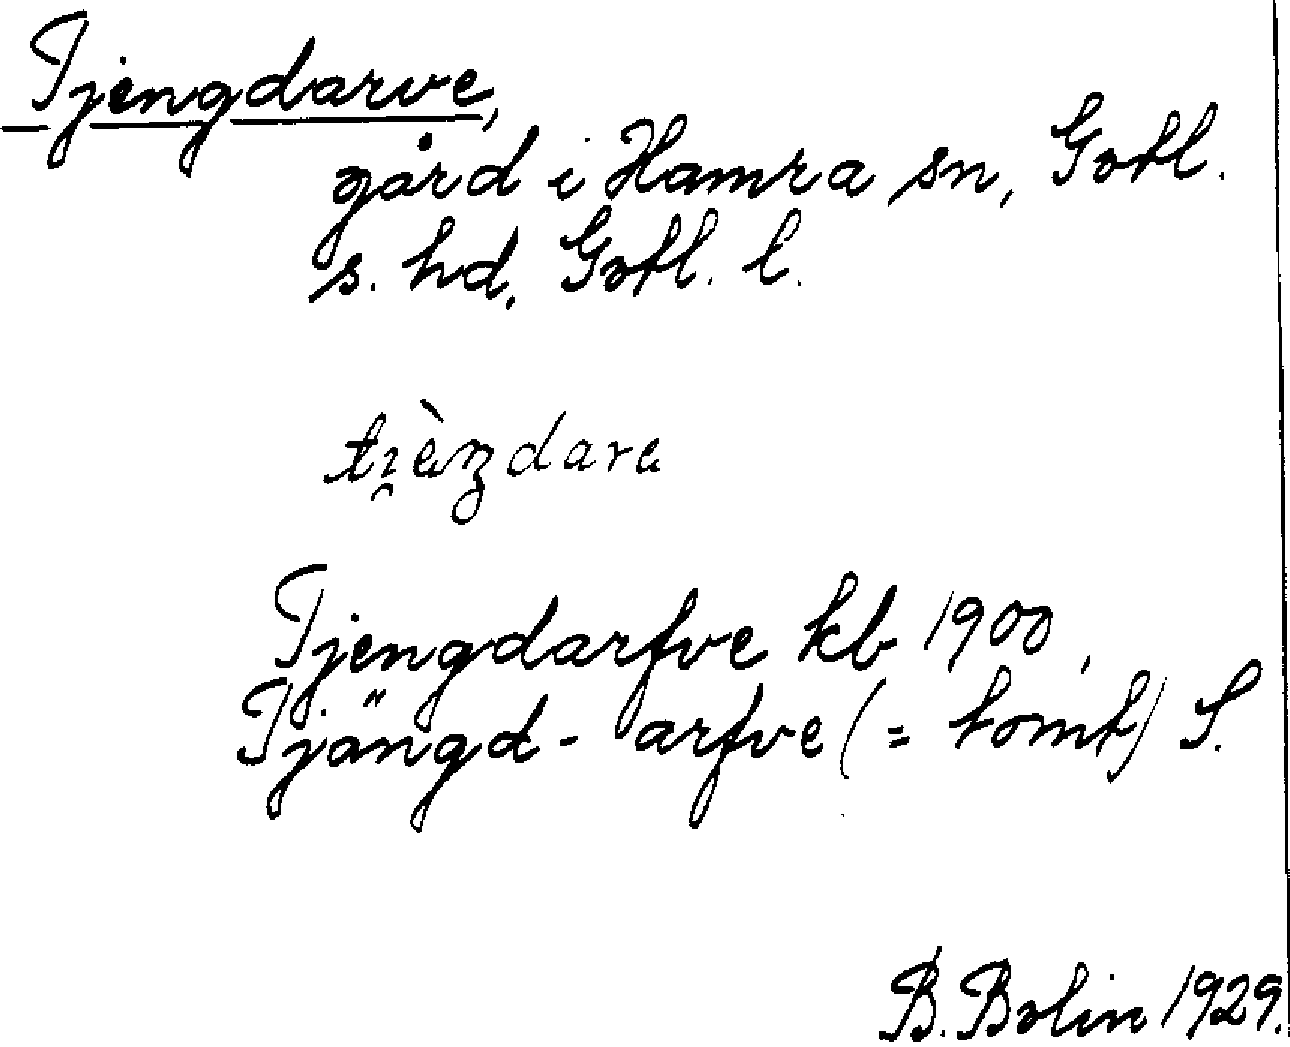 Tjengdarve,
gård i Hamra sn, Gotl.
s. hd, Gotl. l.
Tjengdarfve kb 1900,
Tjängd-arfve (= tomt) S.
B. Bolin 1929.